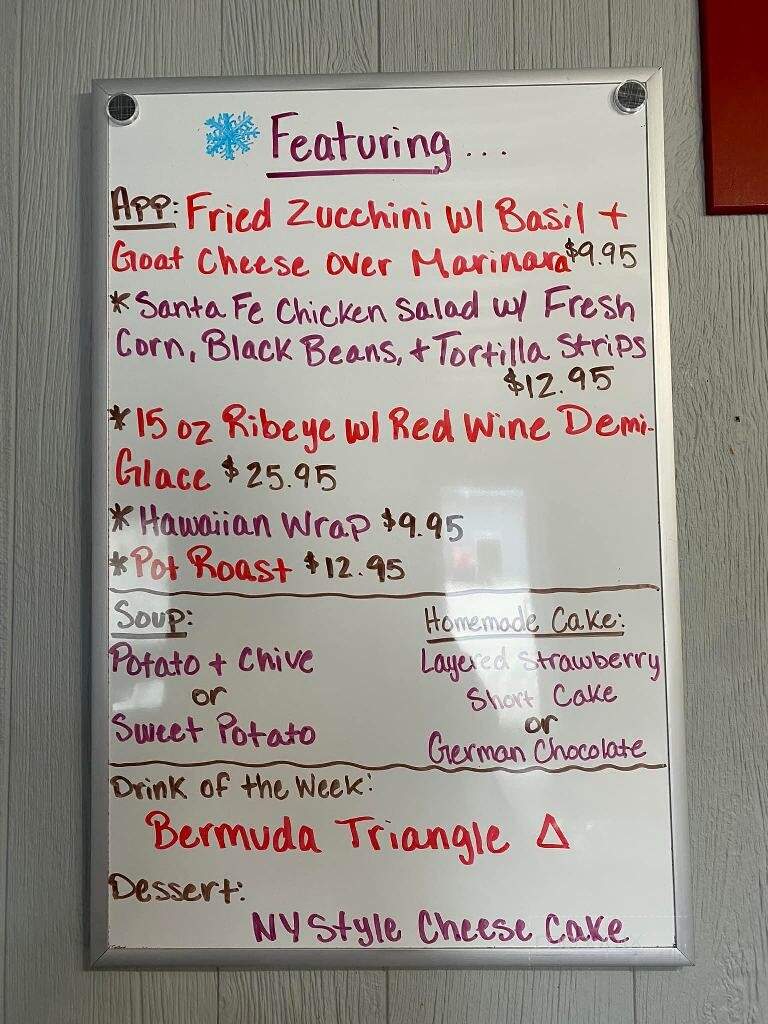 Featuring...
App: Fried Zucchini w/ Basil +
Goat Cheese over Marinara $9.95
* Santa Fe Chicken Salad w/ Fresh
Corn, Black Beans, + Tortilla Strips
$12.95
* 15 oz Ribeye w/ Red Wine Demi-
Glace $25.95
* Hawaiian Wrap $9.95
* Pot Roast $12.95
Soup:
Potato + Chive
or
Sweet Potato
Homemade Cake:
Layered Strawberry
Short Cake
or
German Chocolate
Drink of the Week:
Bermuda Triangle Δ
Dessert:
NY Style Cheese Cake